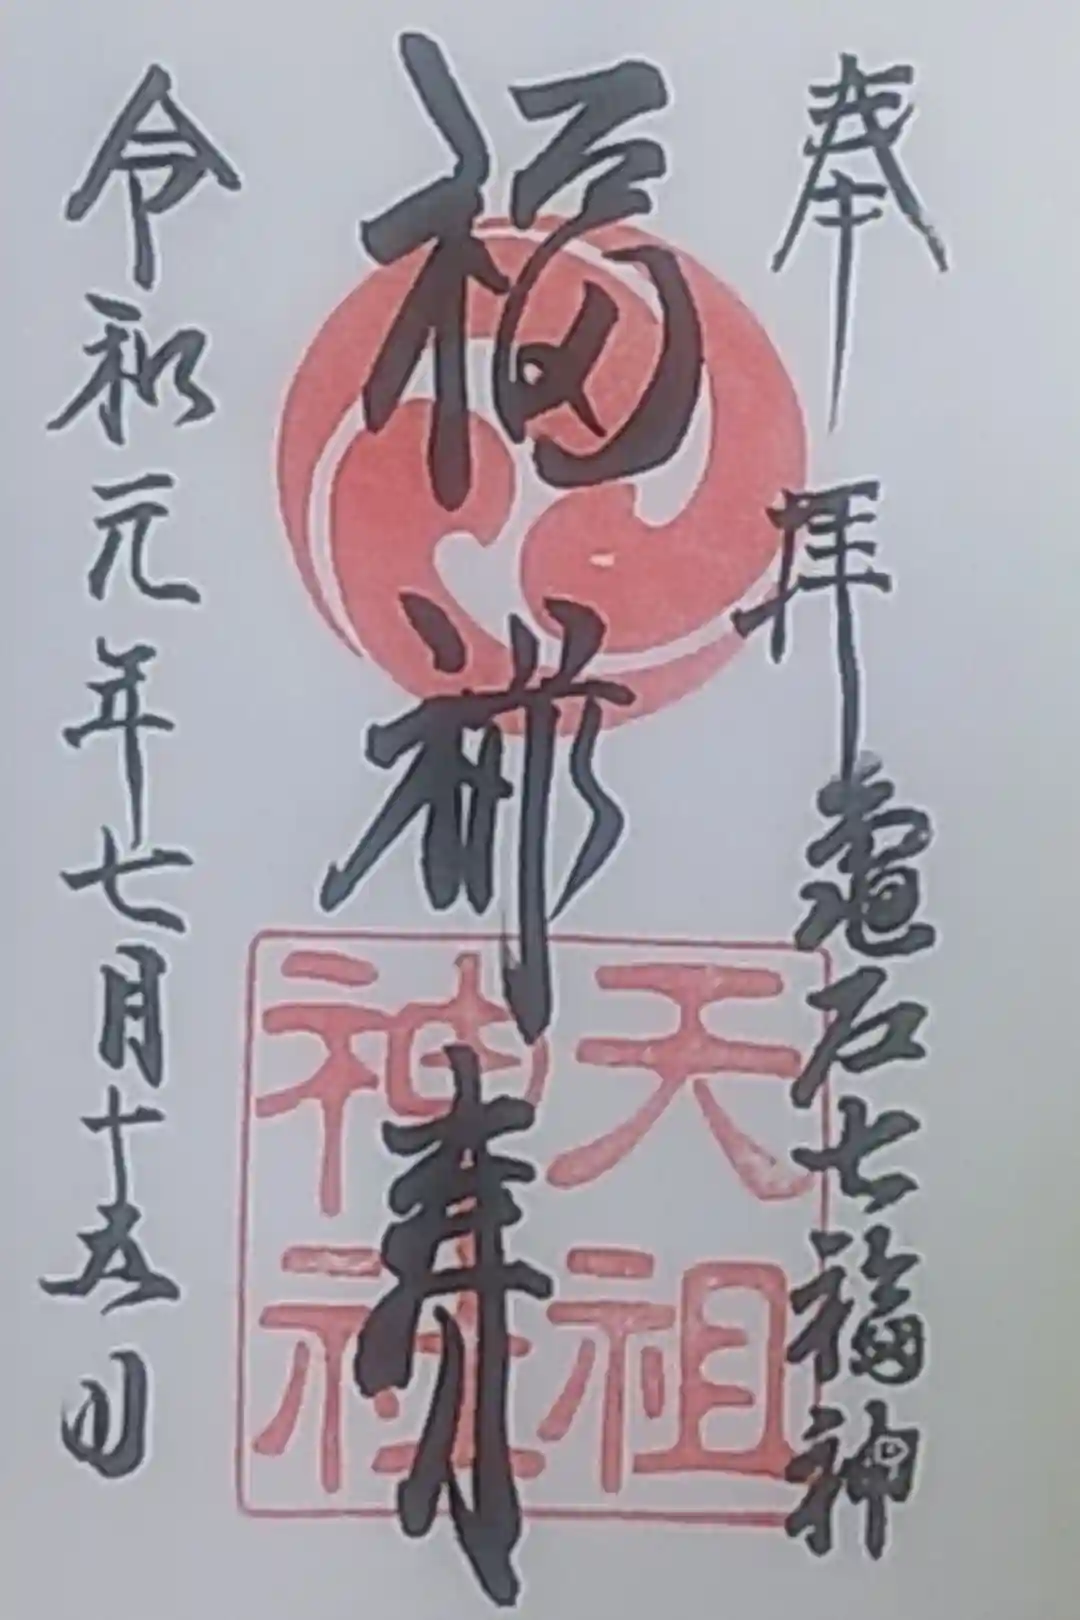 奉拝
亀戸七福神
福禄寿
天祖
神社
令和元年七月十五日